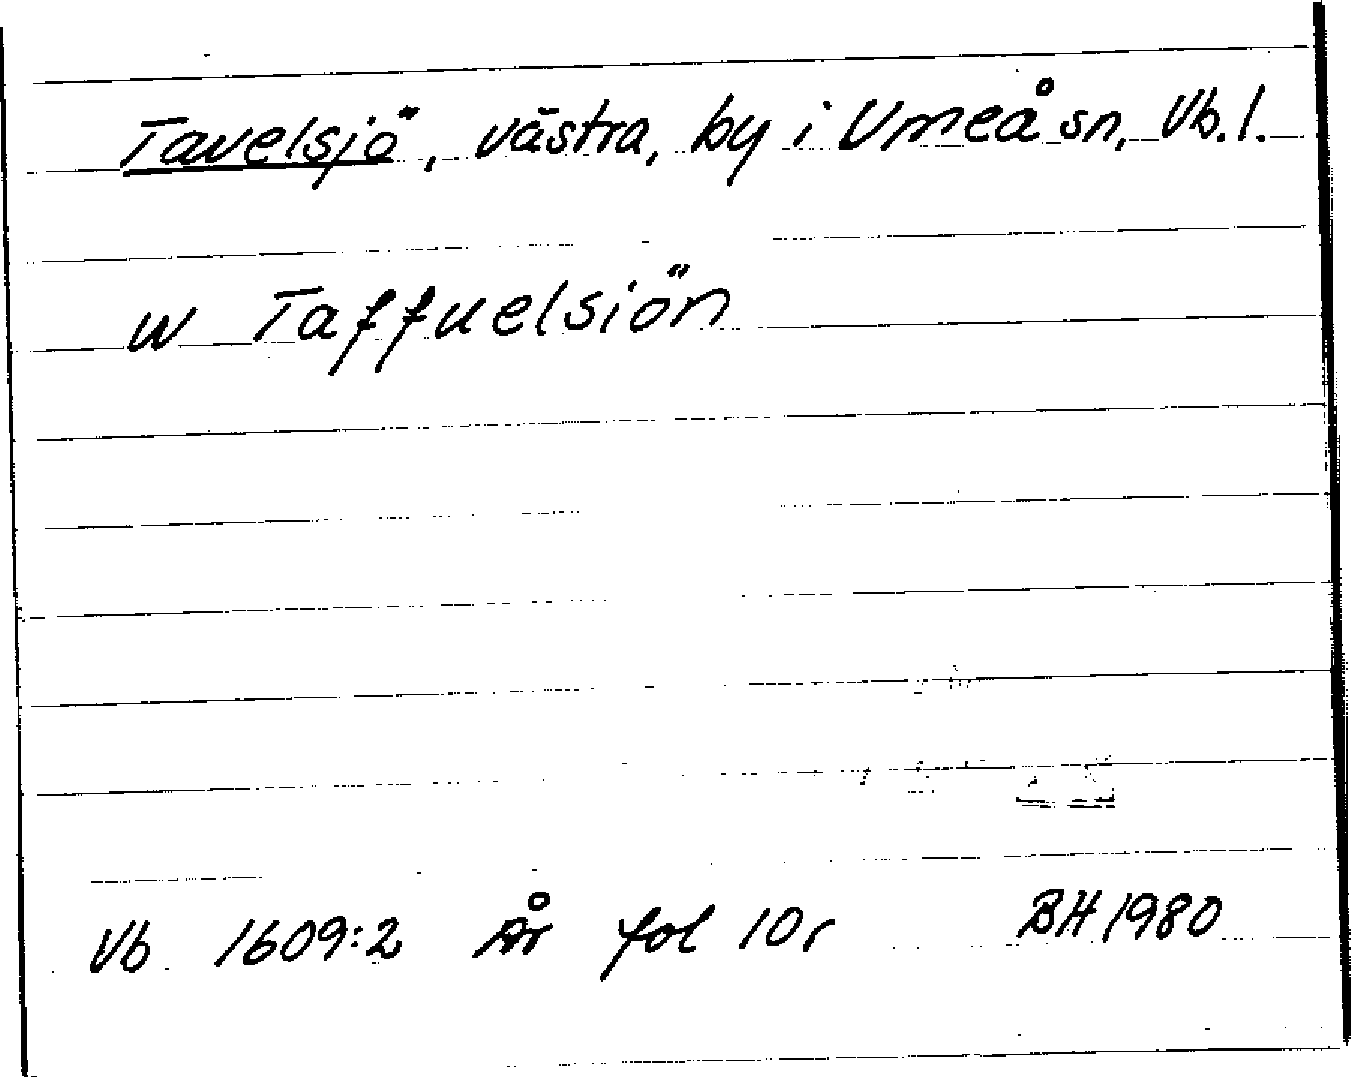 Tavelsjö, västra, by i Umeå sn, Vb. l.
w Taffuelsiön
Vb 1609:2 År fol 10r BH 1980